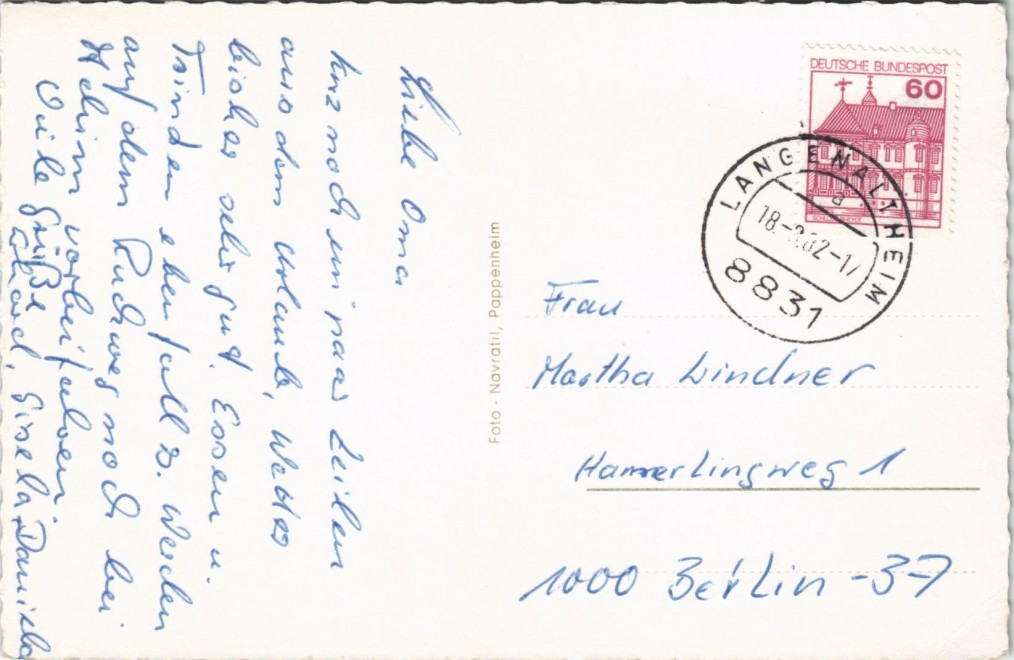 Liebe Oma
kurz noch ein paar Zeilen
aus dem Urlaub, Wetter
bisher sehr gut. Essen u.
Trinken ebenfalls. Werden
auf dem Rückweg noch bei
Achim vorbeifahren.
Viele Grüße
Gisela, Daniela
Foto - Navratil, Pappenheim
DEUTSCHE BUNDESPOST
60
LANGENALTHEIM
a
8831
Frau
Martha Lindner
Hamerlingweg 1
1000 Berlin -37